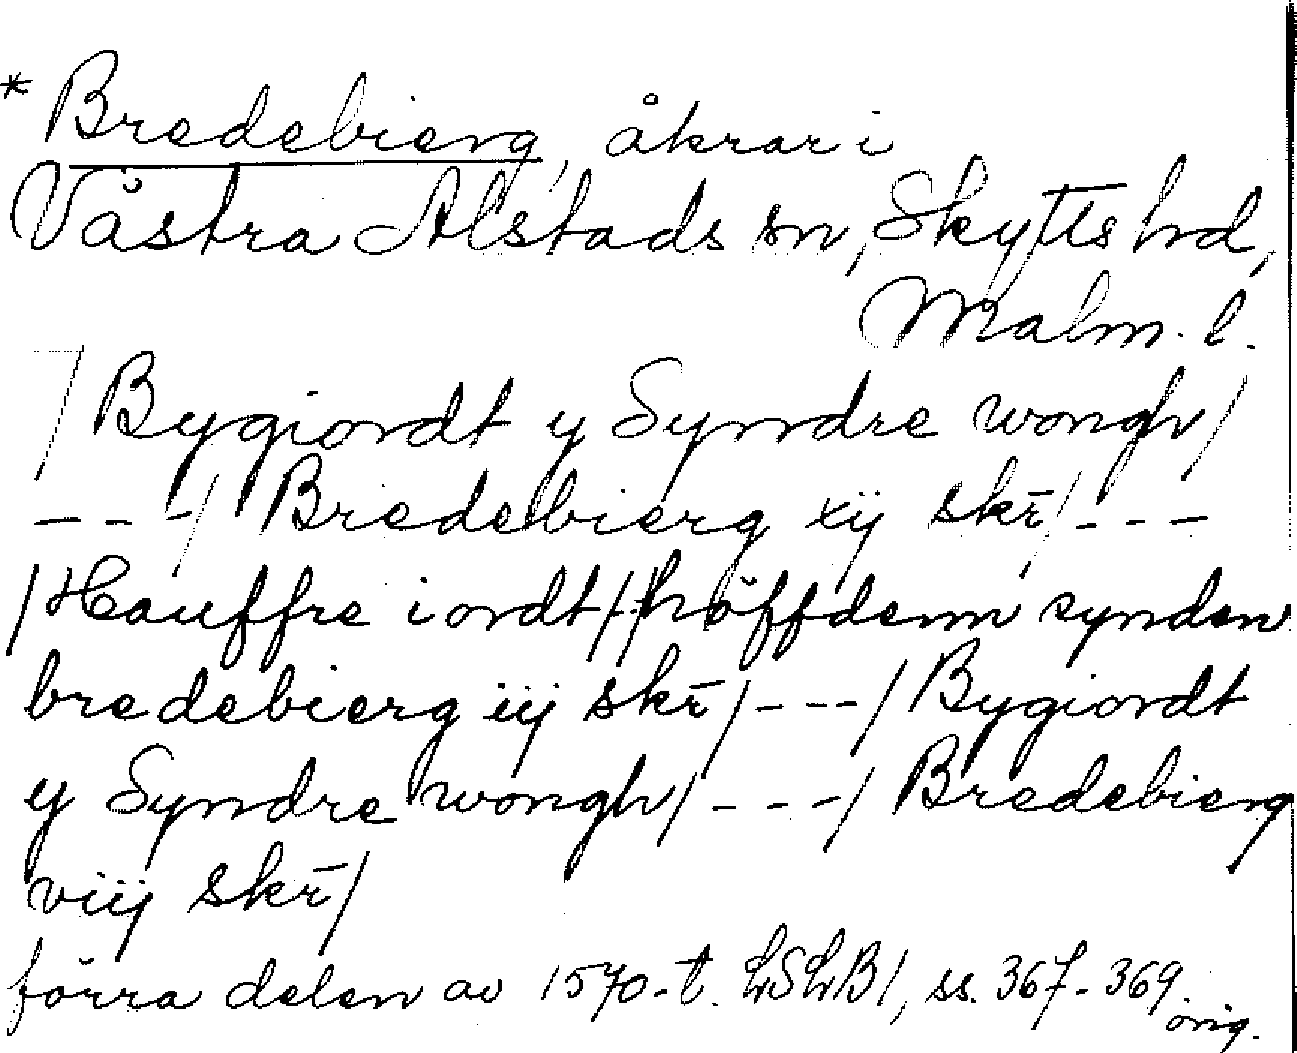 * Bredebierg, åkrar i
Västra Alstads sn, Skytts hd,
Malm. l.
/Bygiordt y Syndre wongh/
---/ Bredebierg xij skr̄/---
/Hauffre iordt/ /höffdenn synden
bredebierg iij skr̄/---/Bygiordt
y Syndre wongh/---/ Bredebierg
viij skr̄/
förra delen av 1570-t. LSLB1, ss. 367-369.
orig.